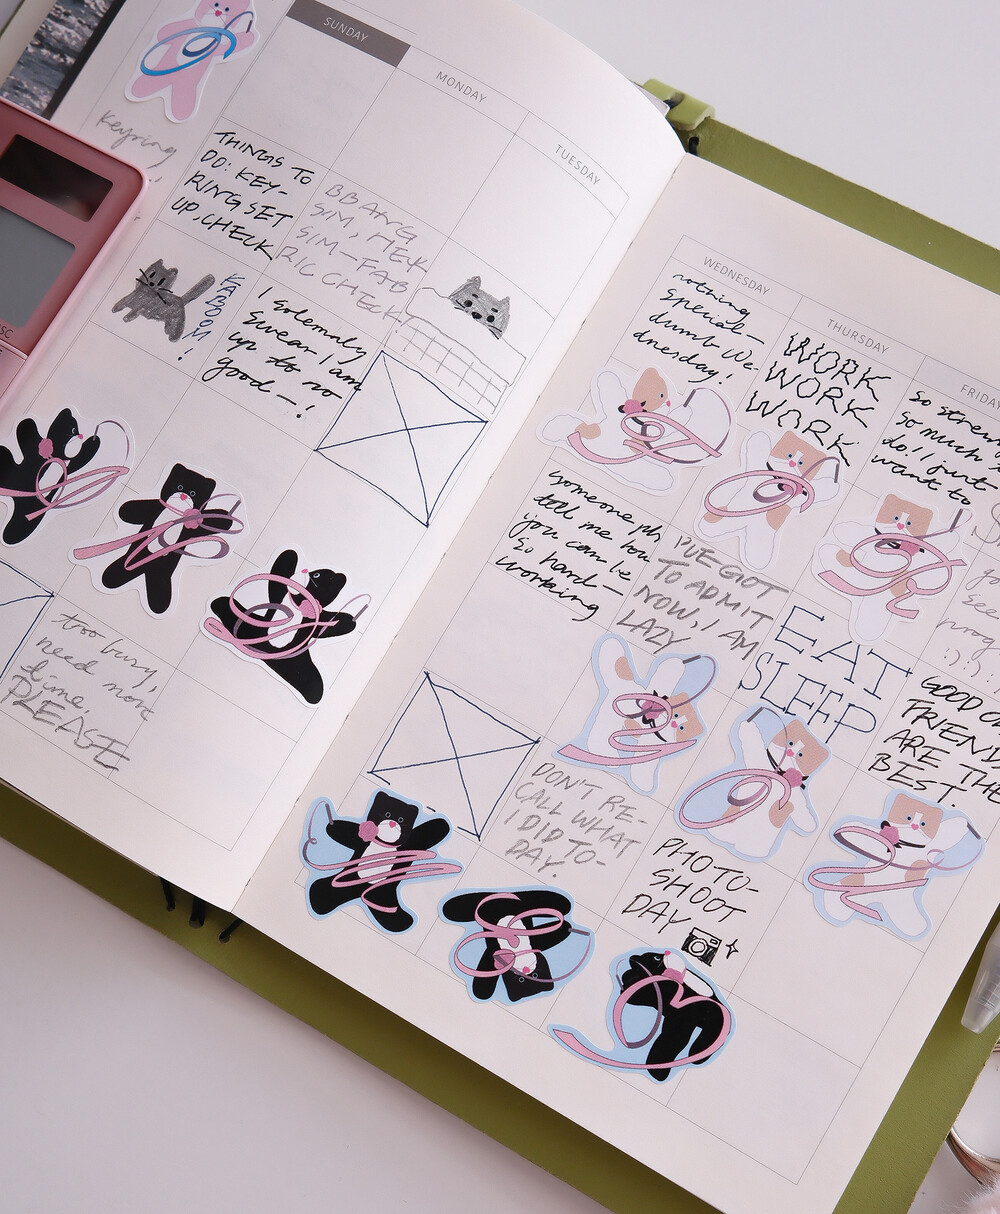 SUNDAY
MONDAY
TUESDAY
Keyring
THINGS TO
DO: KEY-
RING SET
UP, CHECK
BBANG
SIM, HEK
SIM-FAB
RIC CHECK
KABOOM
!
I solemnly
swear I am
up to no
good—!
too busy,
need more
time.
PLEASE
WEDNESDAY
THURSDAY
FRIDAY
nothing
special—
dumb We-
dnesday!
WORK
WORK
WORK
So stre
So much
do!! just
want to
someone pls
tell me how
you can be
so hard-
working
I'VE GOT
TO ADMIT
NOW, I AM
LAZY
EAT
SLEEP
see
prog
:):):)
GOOD O
FRIENDS
ARE THE
BEST.
DON'T RE-
CALL WHAT
I DID TO-
DAY.
PHOTO-
SHOOT
DAY